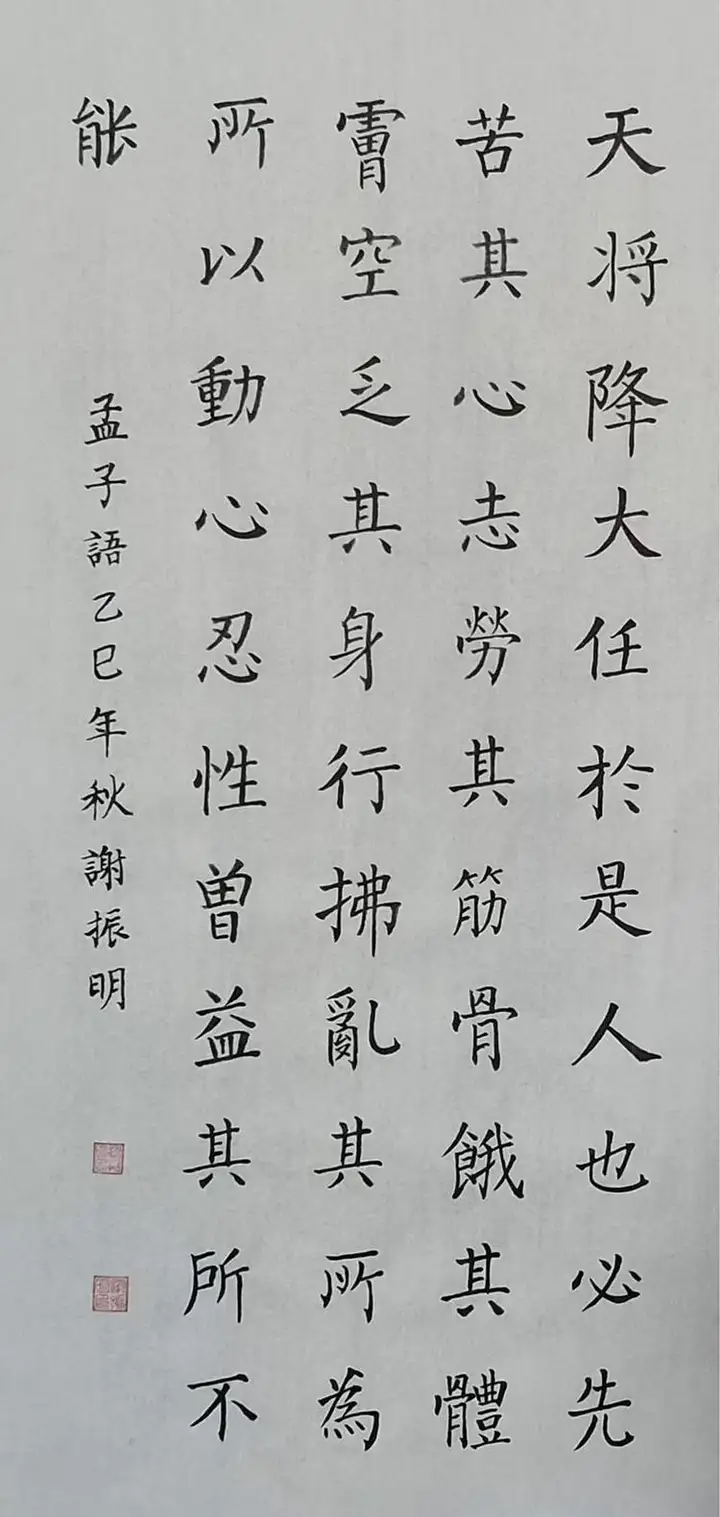 天将降大任於是人也必先
苦其心志勞其筋骨餓其體
膚空乏其身行拂亂其所為
所以動心忍性曾益其所不
能
孟子語乙巳年秋謝振明